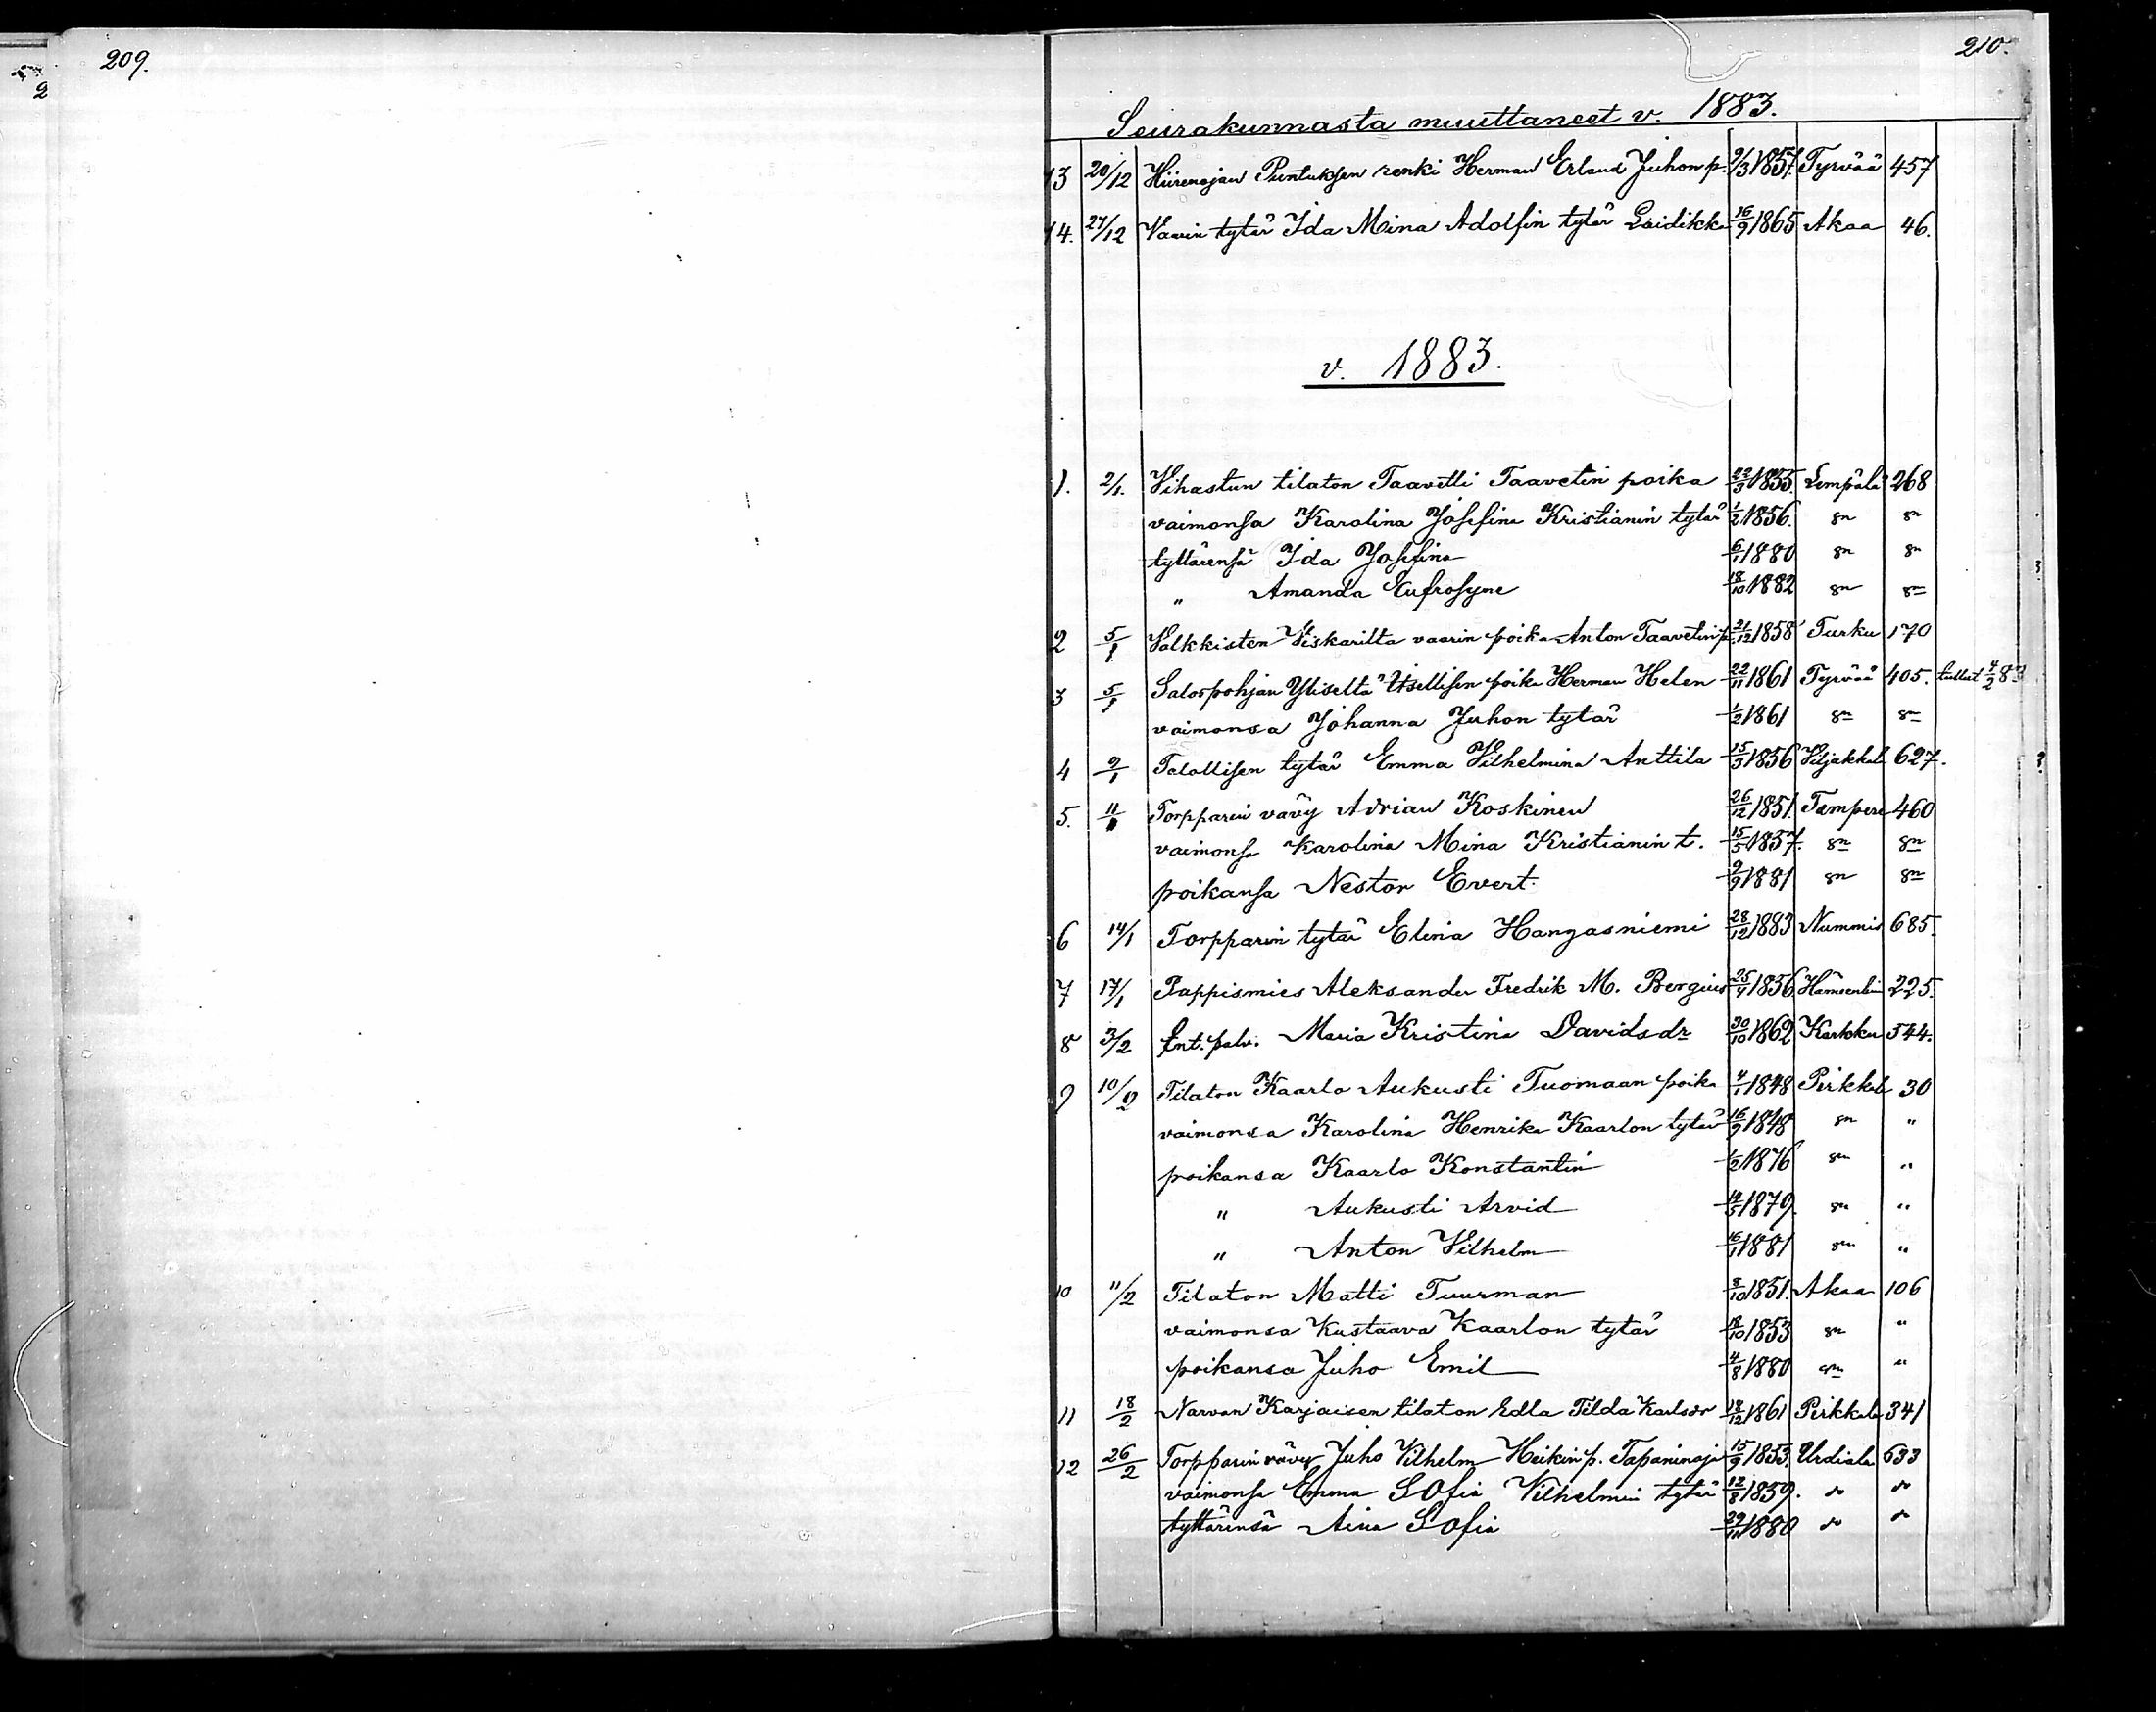 209.
210.
Seurakunnasta muuttaneet v. 1883.
13 20/12 Hiirenojan Puntuksen renki Herman Erland Juhon p. 9/3 1857. Tyrvää 457
14. 27/12 Vaarin tytär Ida Mina Adolfin tytär Laidikka 16/9 1865 Akaa 46.
v. 1883.
1. 2/1. Vihastun tilaton Taavetti Taavetin poika 22/3 1855. Lempäälä 268
vaimonsa Karolina Josefina Kristianin tytär 1/2 1856. sn sn
tyttärensä Ida Josefina 6/1 1880 sn sn
" Amanda Eufrosyne 18/10 1882 sn sn
2 5/1 Salkkisten Viskarilta vaarin poika Anton Taavetin p. 21/12 1858 Turku 170
3 5/1 Salospohjan Yliseltä Itsellisen poika Herman Helen 22/11 1861 Tyrvää 405. tullut 4/2 83
vaimonsa Johanna Juhon tytär 1/2 1861 sn sn
4 9/1 Talollisen tytär Emma Vilhelmina Anttila 15/5 1856 Viljakkal 627.
5. 11/1 Torpparin vävy Adrian Koskinen 26/12 1851. Tampere 460
vaimonsa Karolina Mina Kristianin t. 15/5 1857. sn sn
poikansa Nestor Evert. 9/9 1881 sn sn
6 14/1 Torpparin tytär Elina Hangasniemi 28/12 1883 Nummis 685.
7 17/1 Pappismies Aleksander Fredrik M. Bergius 25/4 1856 Hämeenlin 225.
8 3/2 Ent. palv. Maria Kristina Davidsdr 30/10 1862 Karkku 544.
9 10/2 Tilaton Kaarlo Aukusti Tuomaan poika 4/1 1848 Pirkkala 30
vaimonsa Karolina Henrika Kaarlon tytär 16/9 1848 sn "
poikansa Kaarlo Konstantin 1/2 1876 sn "
" Aukusti Arvid 14/5 1879. sn "
" Anton Vilhelm 16/1 1881 sn "
10 11/2 Tilaton Matti Tuurman 8/10 1851. Akaa 106
vaimonsa Kustaava Kaarlon tytär 18/10 1853 sn "
poikansa Juho Emil 4/8 1880 sn "
11 18/2 Narvan Karjaisen tilaton Edla Tilda Karlsdr 18/12 1861 Pirkkala 341
12 26/2 Torpparin vävy Juho Vilhelm Heikin p. Tapaninoja 15/9 1853. Urdiala 633
vaimonsa Emma Sofia Vilhelmin tytär 12/8 1859. do do
tyttärensä Aina Sofia 29/11 1880 do do